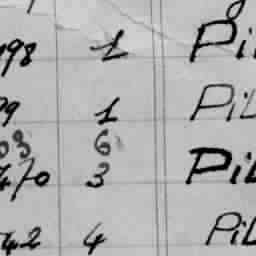 98 1 Pil
99 1 Pil
03 6
470 3 Pil
42 4 Pil